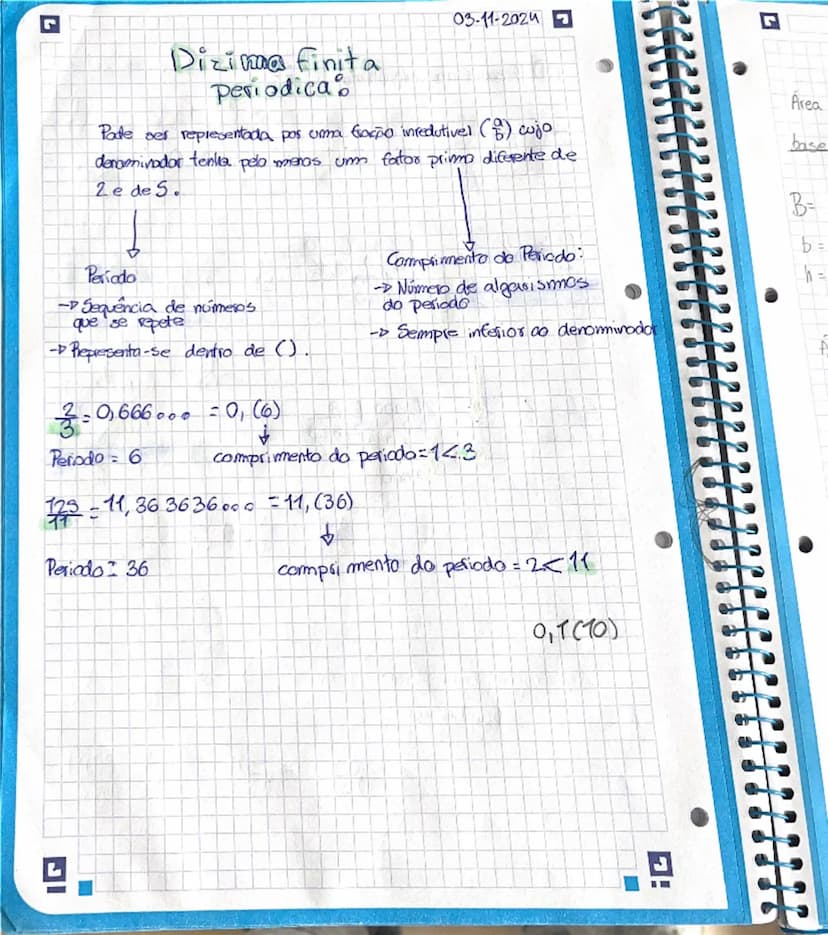 03-11-2024
Dizima finita
periodica:
Pode ser representada por uma fração irredutivel (a/b) cujo
denominador tenha pelo menos um fator primo diferente de
2 e de 5.
Periodo
→ Sequência de números
que se repete
→ Representa-se dentro de ().
Comprimento do Periodo:
→ Número de algarismos
do periodo
→ Sempre inferior ao denominador
2/3 = 0,666... = 0,(6)
Periodo = 6 comprimento do periodo = 1 < 3
125/11 = 11,363636... = 11,(36)
Periodo = 36 comprimento do periodo = 2 < 11
0,1(10)
Área
base
B=
b =
h =